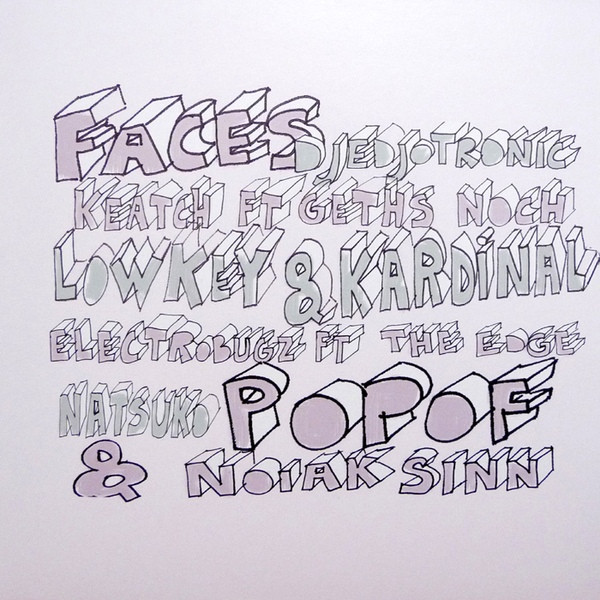 FACES DJEDJOTRONIC
KEATCH FT GETHS NOCH
LOWKEY & KARDiNAL
ELECTROBUGZ FT THE EDGE
NATSUKO POPOF
& NOiAK SINN